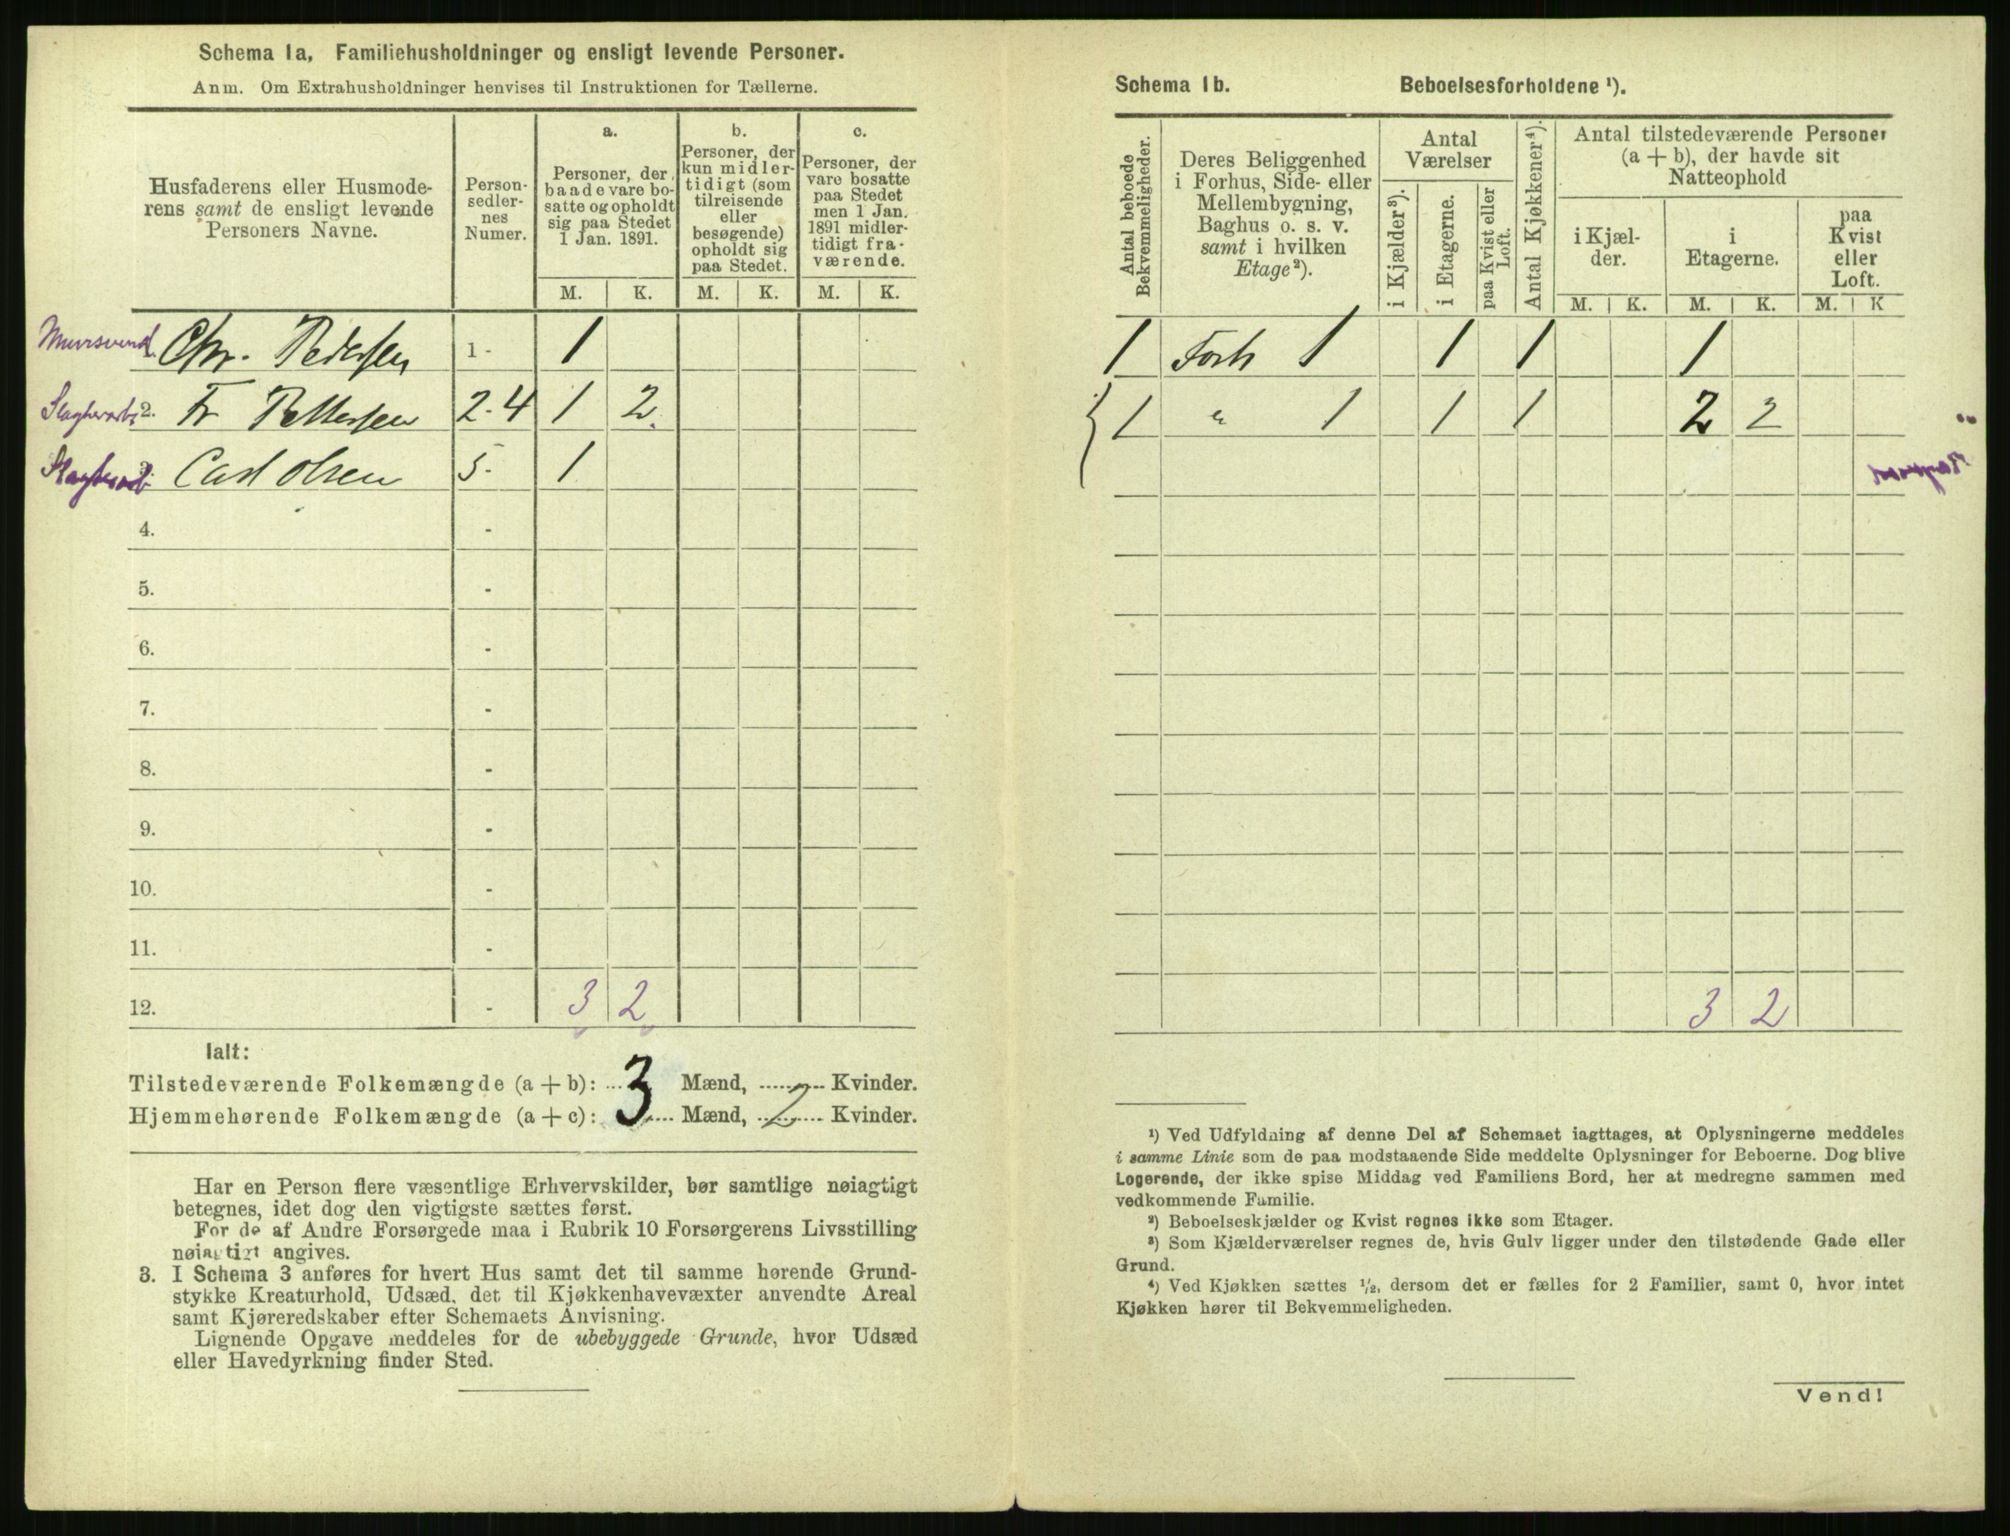 Schema 1a, Familiehusholdninger og ensligt levende Personer.
Anm. Om Extrahusholdninger henvises til Instruktionen for Tællerne.
Husfaderens eller Husmode-
rens samt de ensligt levende
Personers Navne.
Person-
sedler-
nes
Numer.
a.
Personer, der
baade vare bo-
satte og opholdt
sig paa Stedet
1 Jan. 1891.
b.
Personer, der
kun midler-
tidigt (som
tilreisende
eller
besøgende)
opholdt sig
paa Stedet.
c.
Personer, der
vare bosatte
paa Stedet
men 1 Jan.
1891 midler-
tidigt fra-
værende.
M. K. M. K. M. K.
Murrsvend. Chr. Pedersen 1- 1
2. Fr Pettersen 2-4 1 2
3. Carl Olsen 5- 1
4. -
5. -
6. -
7. -
8. -
9. -
10. -
11. -
12. - 3 2
Ialt:
Tilstedeværende Folkemængde (a + b): 3 Mænd, Kvinder.
Hjemmehørende Folkemængde (a + c): Mænd, 2 Kvinder.
Har en Person flere væsentlige Erhvervskilder, bør samtlige nøiagtigt
betegnes, idet dog den vigtigste sættes først.
For de af Andre Forsørgede maa i Rubrik 10 Forsørgerens Livsstilling
nøiagtigt angives.
3. I Schema 3 anføres for hvert Hus samt det til samme hørende Grund-
stykke Kreaturhold, Udsæd, det til Kjøkkenhavevæxter anvendte Areal
samt Kjøreredskaber efter Schemaets Anvisning.
Lignende Opgave meddeles for de ubebyggede Grunde, hvor Udsæd
eller Havedyrkning finder Sted.
Schema 1b. Beboelsesforholdene ¹).
Antal beboede
Bekvemmeligheder.
Deres Beliggenhed
i Forhus, Side- eller
Mellembygning,
Baghus o. s. v.
samt i hvilken
Etage²).
Antal
Værelser
i Kjælder³).
i Etagerne.
paa Kvist eller
Loft.
Antal Kjøkkener⁴).
Antal tilstedeværende Personer
(a + b), der havde sit
Natteophold
i Kjæl-
der.
i
Etagerne.
paa
Kvist
eller
Loft.
M. K. M. K. M. K
1 Forh 1 1 1 1
1 " 1 1 1 2 2
3 2
¹) Ved Udfyldning af denne Del af Schemaet iagttages, at Oplysningerne meddeles
i samme Linie som de paa modstaaende Side meddelte Oplysninger for Beboerne. Dog blive
Logerende, der ikke spise Middag ved Familiens Bord, her at medregne sammen med
vedkommende Familie.
²) Beboelseskjælder og Kvist regnes ikke som Etager.
³) Som Kjælderværelser regnes de, hvis Gulv ligger under den tilstødende Gade eller
Grund.
⁴) Ved Kjøkken sættes ½, dersom det er fælles for 2 Familier, samt 0, hvor intet
Kjøkken hører til Bekvemmeligheden.
Vend!